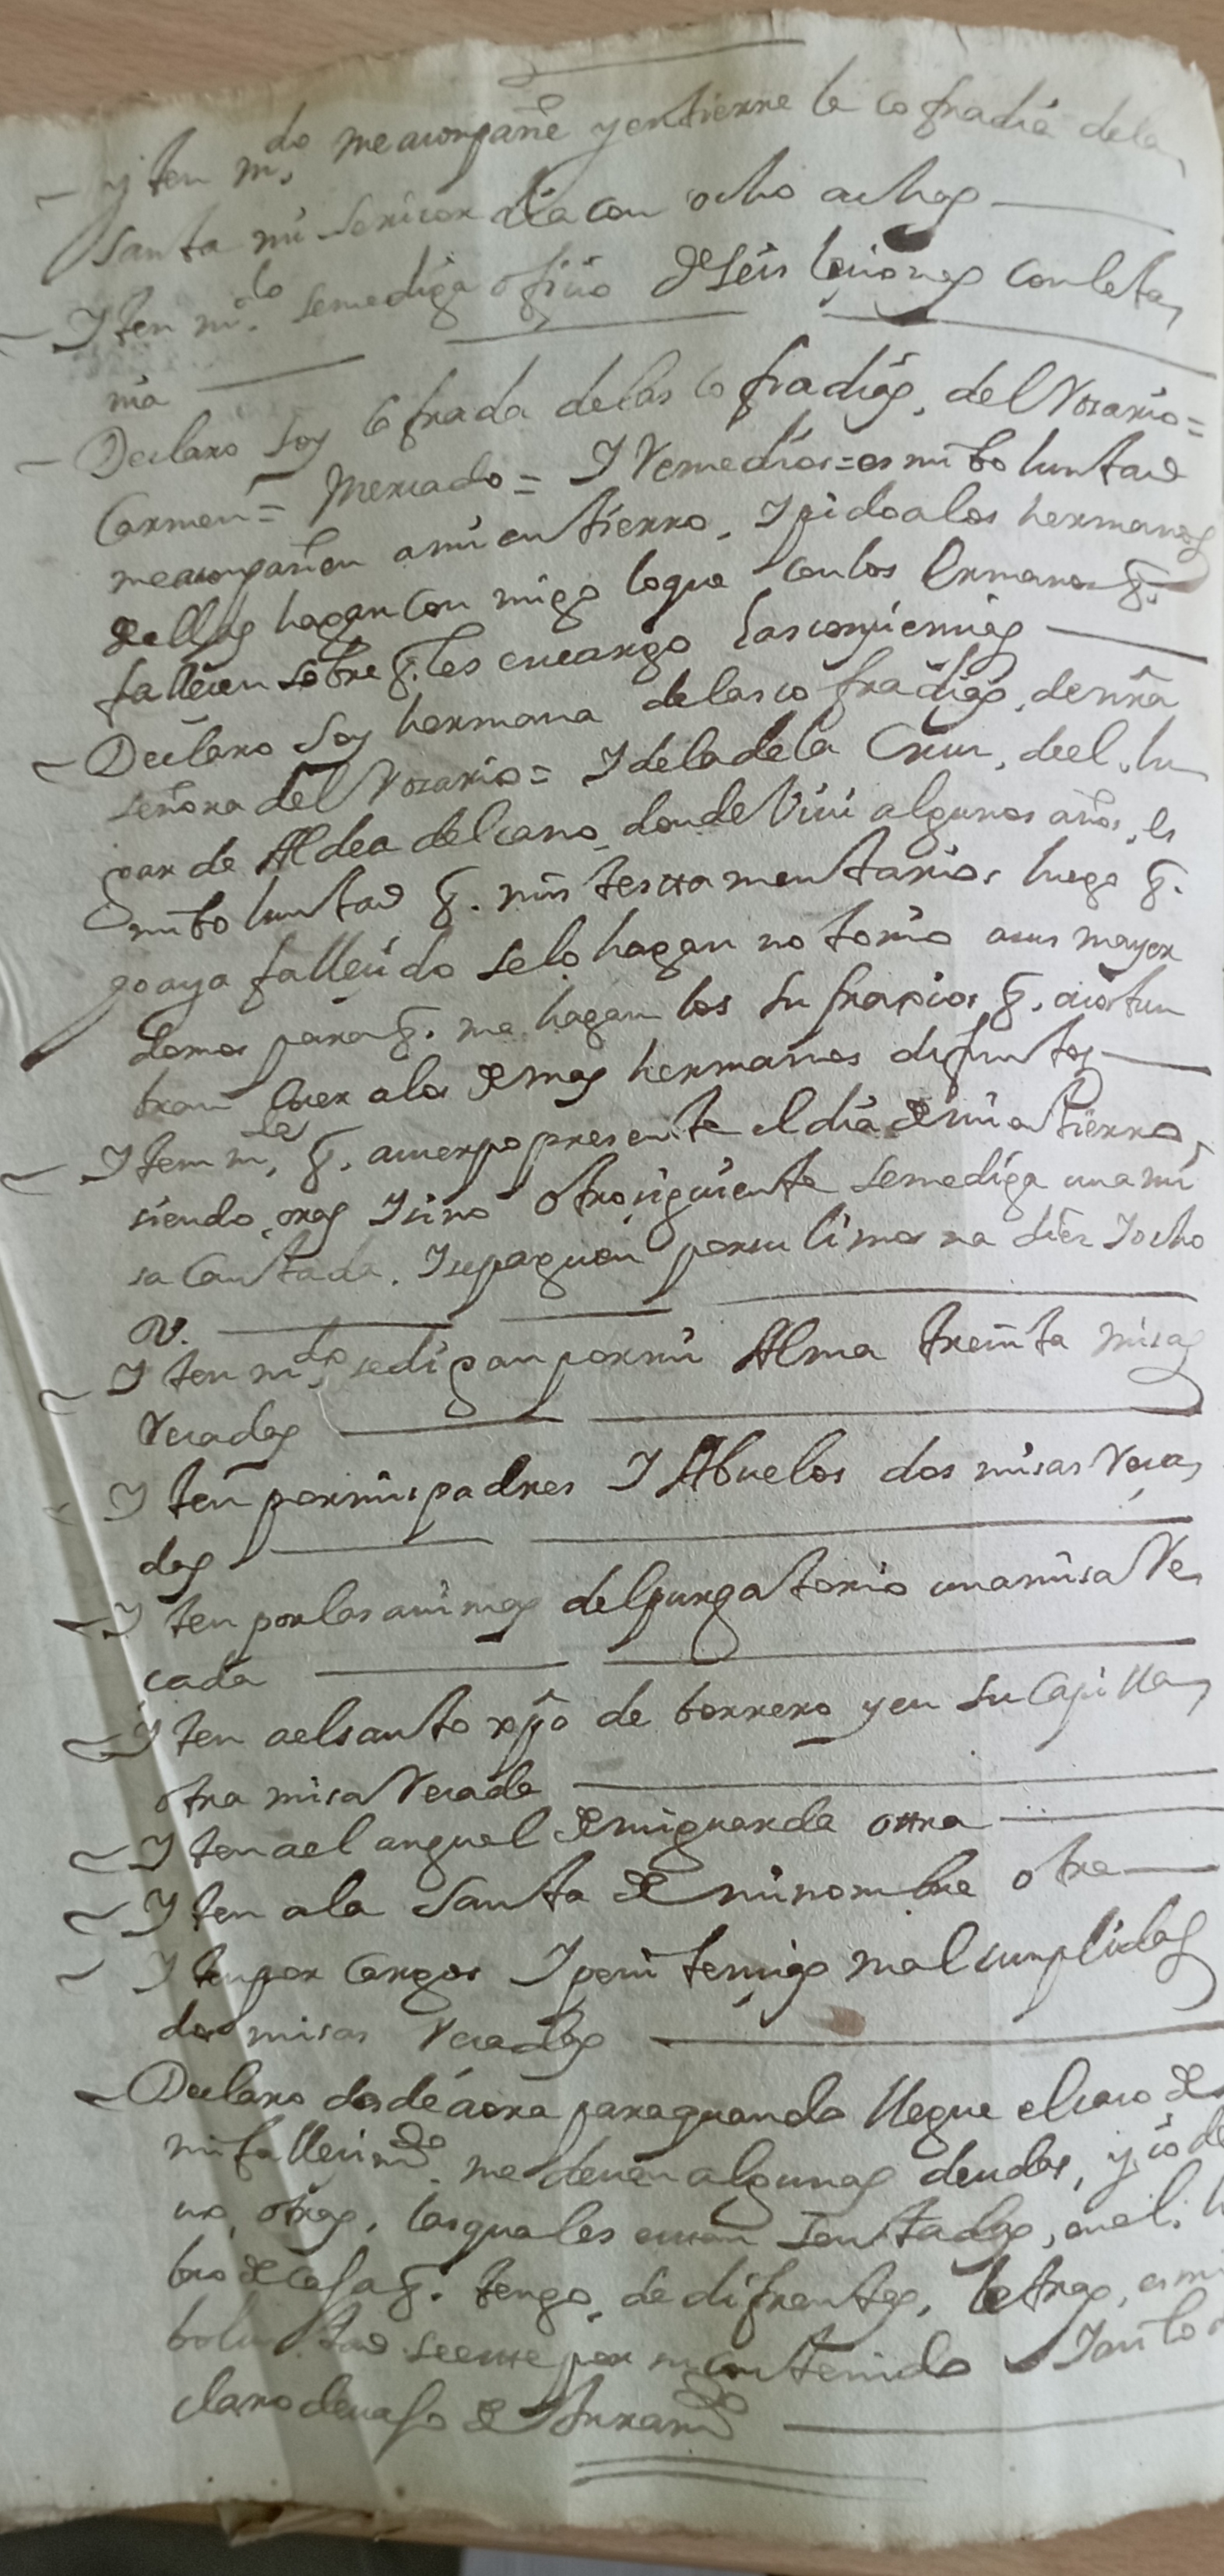 Yten m.do me aconpañe y entierre la cofradia de la
santa miSericordia con ocho achas
Iten m.do se me diga ofizio de seis leciones con leta
nia
Declaro soy cofrada de las cofradias, del Rosario=
Carmen= Mercado= I Remedios= es mi boluntad
me aconpañen a mi entierro, I pido a los hermanos
de llas hagan con migo lo que con los Ermanos q.
fallecen sobre q. les encargo las conziencias
Declaro soy hermana de las cofradias, de nrã
señora del Rosario= I de la de la Cruz, de el lu
gar de Aldea del cano, donde Vivi algunos años, es
mi boluntad q. mis testtamentarios luego q.
yo aya fallecido se lo hagan notorio a sus mayor
domos para q. me hagan los sufraxios q. acostun
bran hacer a los demas hermanos difuntos
Iten m.do q. a cuerpo presente el dia de mi entierro,
siendo oras I sino otro siguiente se me diga una mi
sa Cantada. I se paguen por su limosna diez I ocho
Rs.
Iten m.do se digan por mi Alma treinta misas
Recadas
Iten por mis padres I Abuelos dos misas Reca
das
Iten por las animas del purgatorio una misa Re
cada
Iten a el santo xpto de borrero y en su Capilla
otra misa Recada
Iten a el anguel de mi guarda ottra
Iten a la santa de mi nombre otra
Iten por cargos I penitencias mal cunplidas
dos misas Recadas
Declaro desde aora para quando llegue el caso de
mi fallecim.to me deven algunas deudas, y io de
vo, otras, las quales estan sentadas, en el li
bro de casa q. tengo, de difrentes, letras, es mi
boluntad se este por su contenido I asi lo de
claro devajo de Juram.to